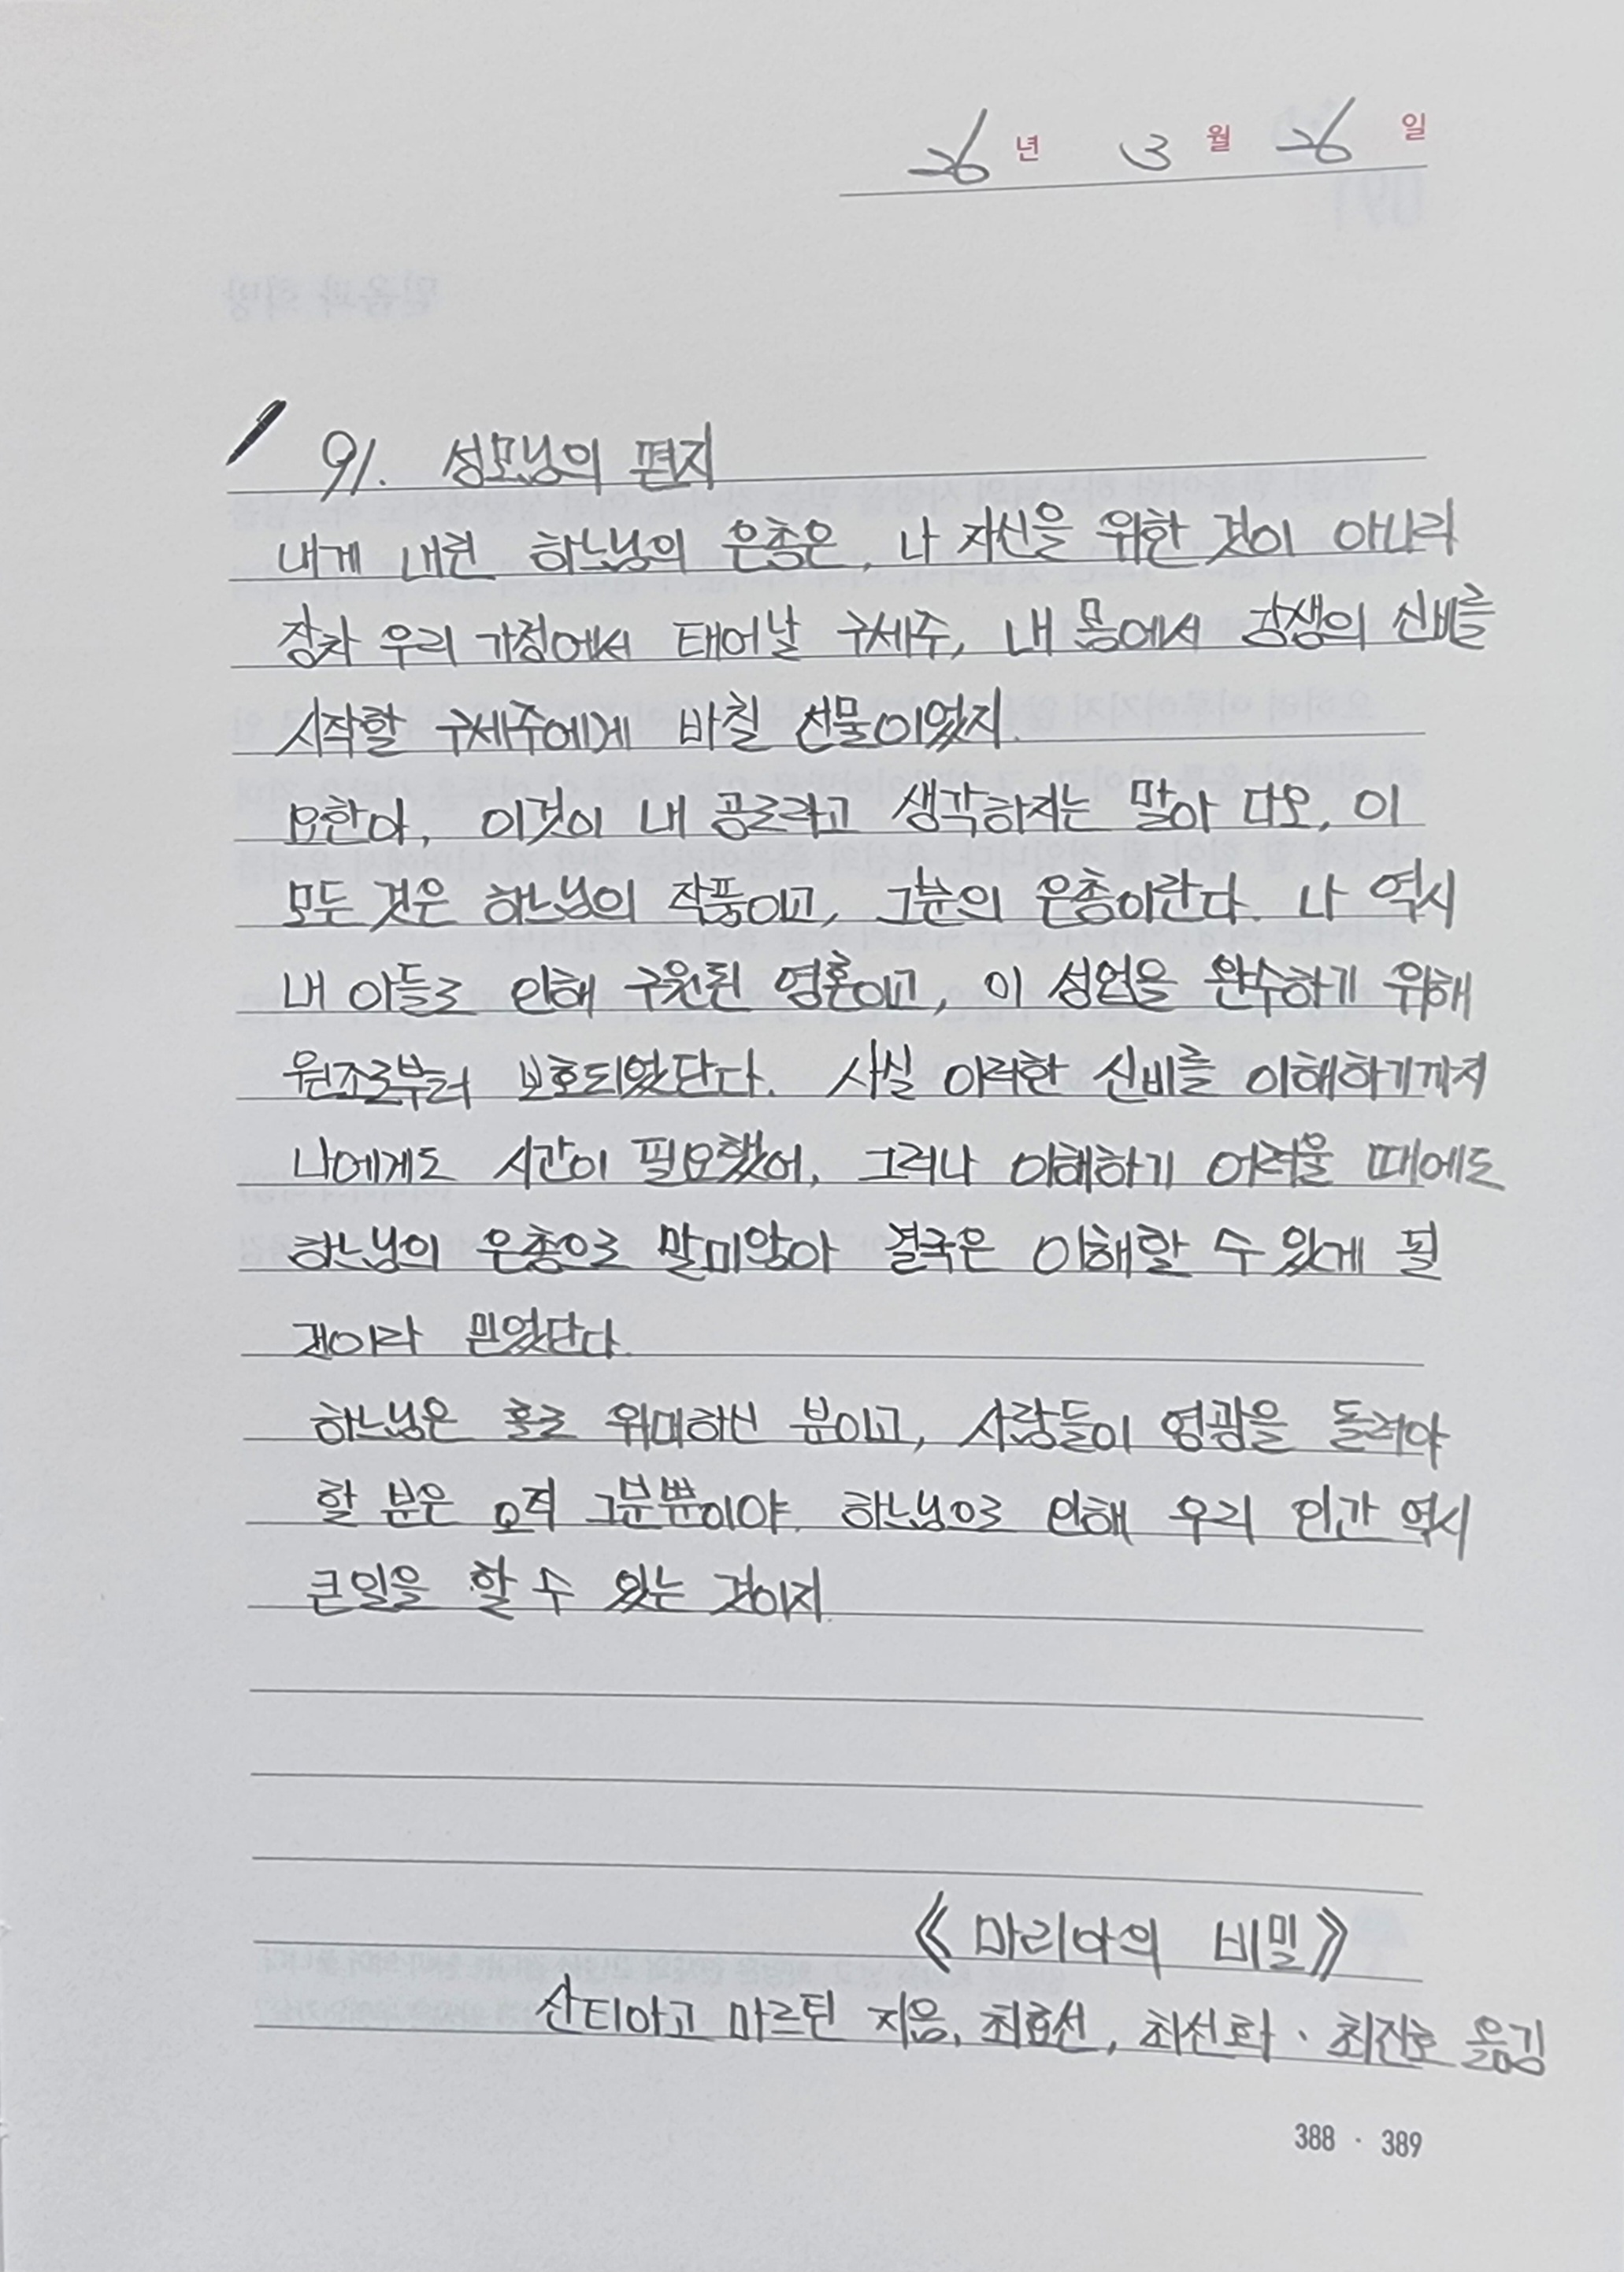 26년 3월 26일
91. 성모님의 편지
내게 내린 하느님의 은총은, 나 자신을 위한 것이 아니라
장차 우리 가정에서 태어날 구세주, 내 몸에서 강생의 신비를
시작할 구세주에게 바칠 선물이었지.
요한아, 이것이 내 공로라고 생각하지는 말아 다오, 이
모든 것은 하느님의 작품이고, 그분의 은총이란다. 나 역시
내 아들로 인해 구원된 영혼이고, 이 성업을 완수하기 위해
원죄로부터 보호되었단다. 사실 이러한 신비를 이해하기까지
나에게도 시간이 필요했어, 그러나 이해하기 어려울 때에도
하느님의 은총으로 말미암아 결국은 이해할 수 있게 될
것이라 믿었단다.
하느님은 홀로 위대하신 분이고, 사람들이 영광을 돌려야
할 분은 오직 그분뿐이야. 하느님으로 인해 우리 인간 역시
큰일을 할 수 있는 것이지.
《마리아의 비밀》
산티아고 마르틴 지음, 최효선, 최선화·최진호 옮김
388 · 389